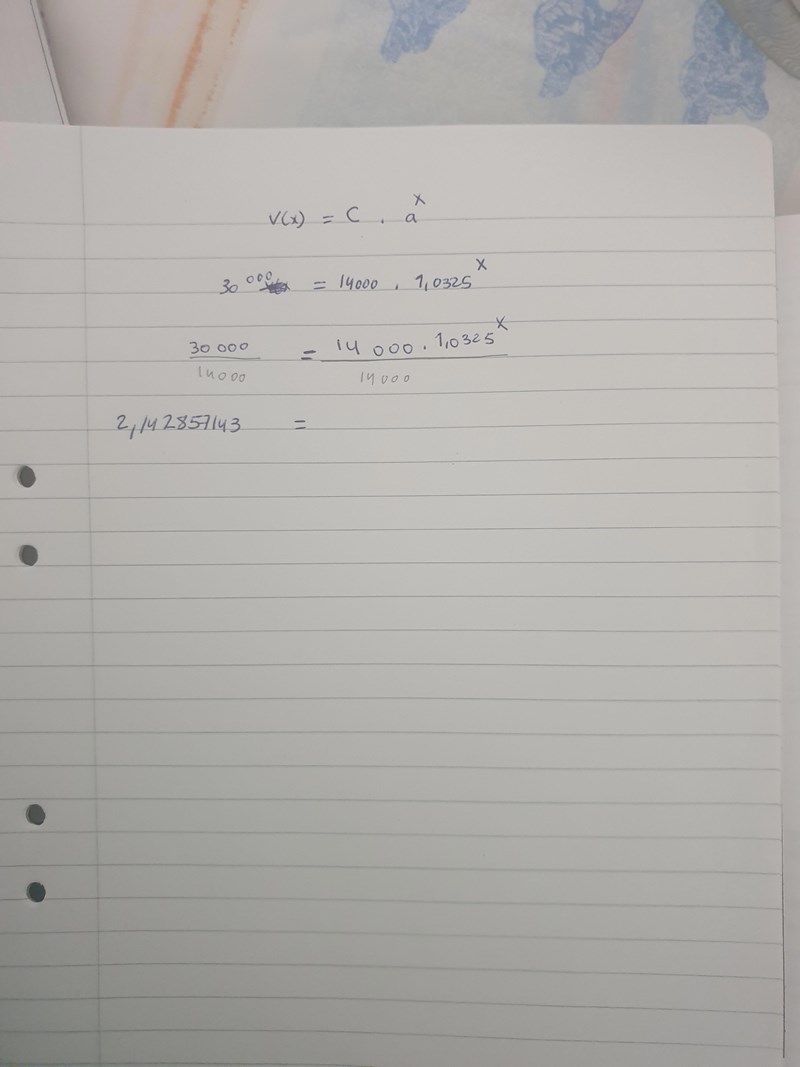 V(x) = C . a^x
30 000 = 14000 . 1,0325^x
30 000 / 14000 = 14 000 . 1,0325^x / 14 000
2,142857143 =